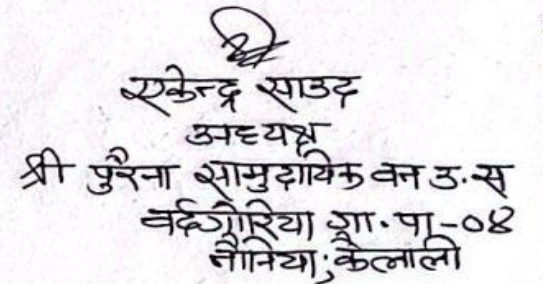 एकेन्द्र साउद
अध्यक्ष
श्री पुरैना सामुदायिक वन उ.स
वर्दगोरिया गा.पा-०४
नौनिया; कैलाली